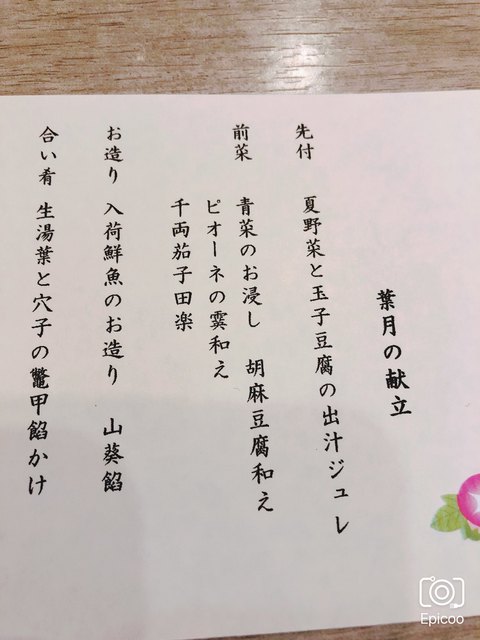 葉月の献立
先付　夏野菜と玉子豆腐の出汁ジュレ
前菜　青菜のお浸し　胡麻豆腐和え
ピオーネの霙和え
千両茄子田楽
お造り　入荷鮮魚のお造り　山葵餡
合い肴　生湯葉と穴子の鼈甲餡かけ
Epicoo